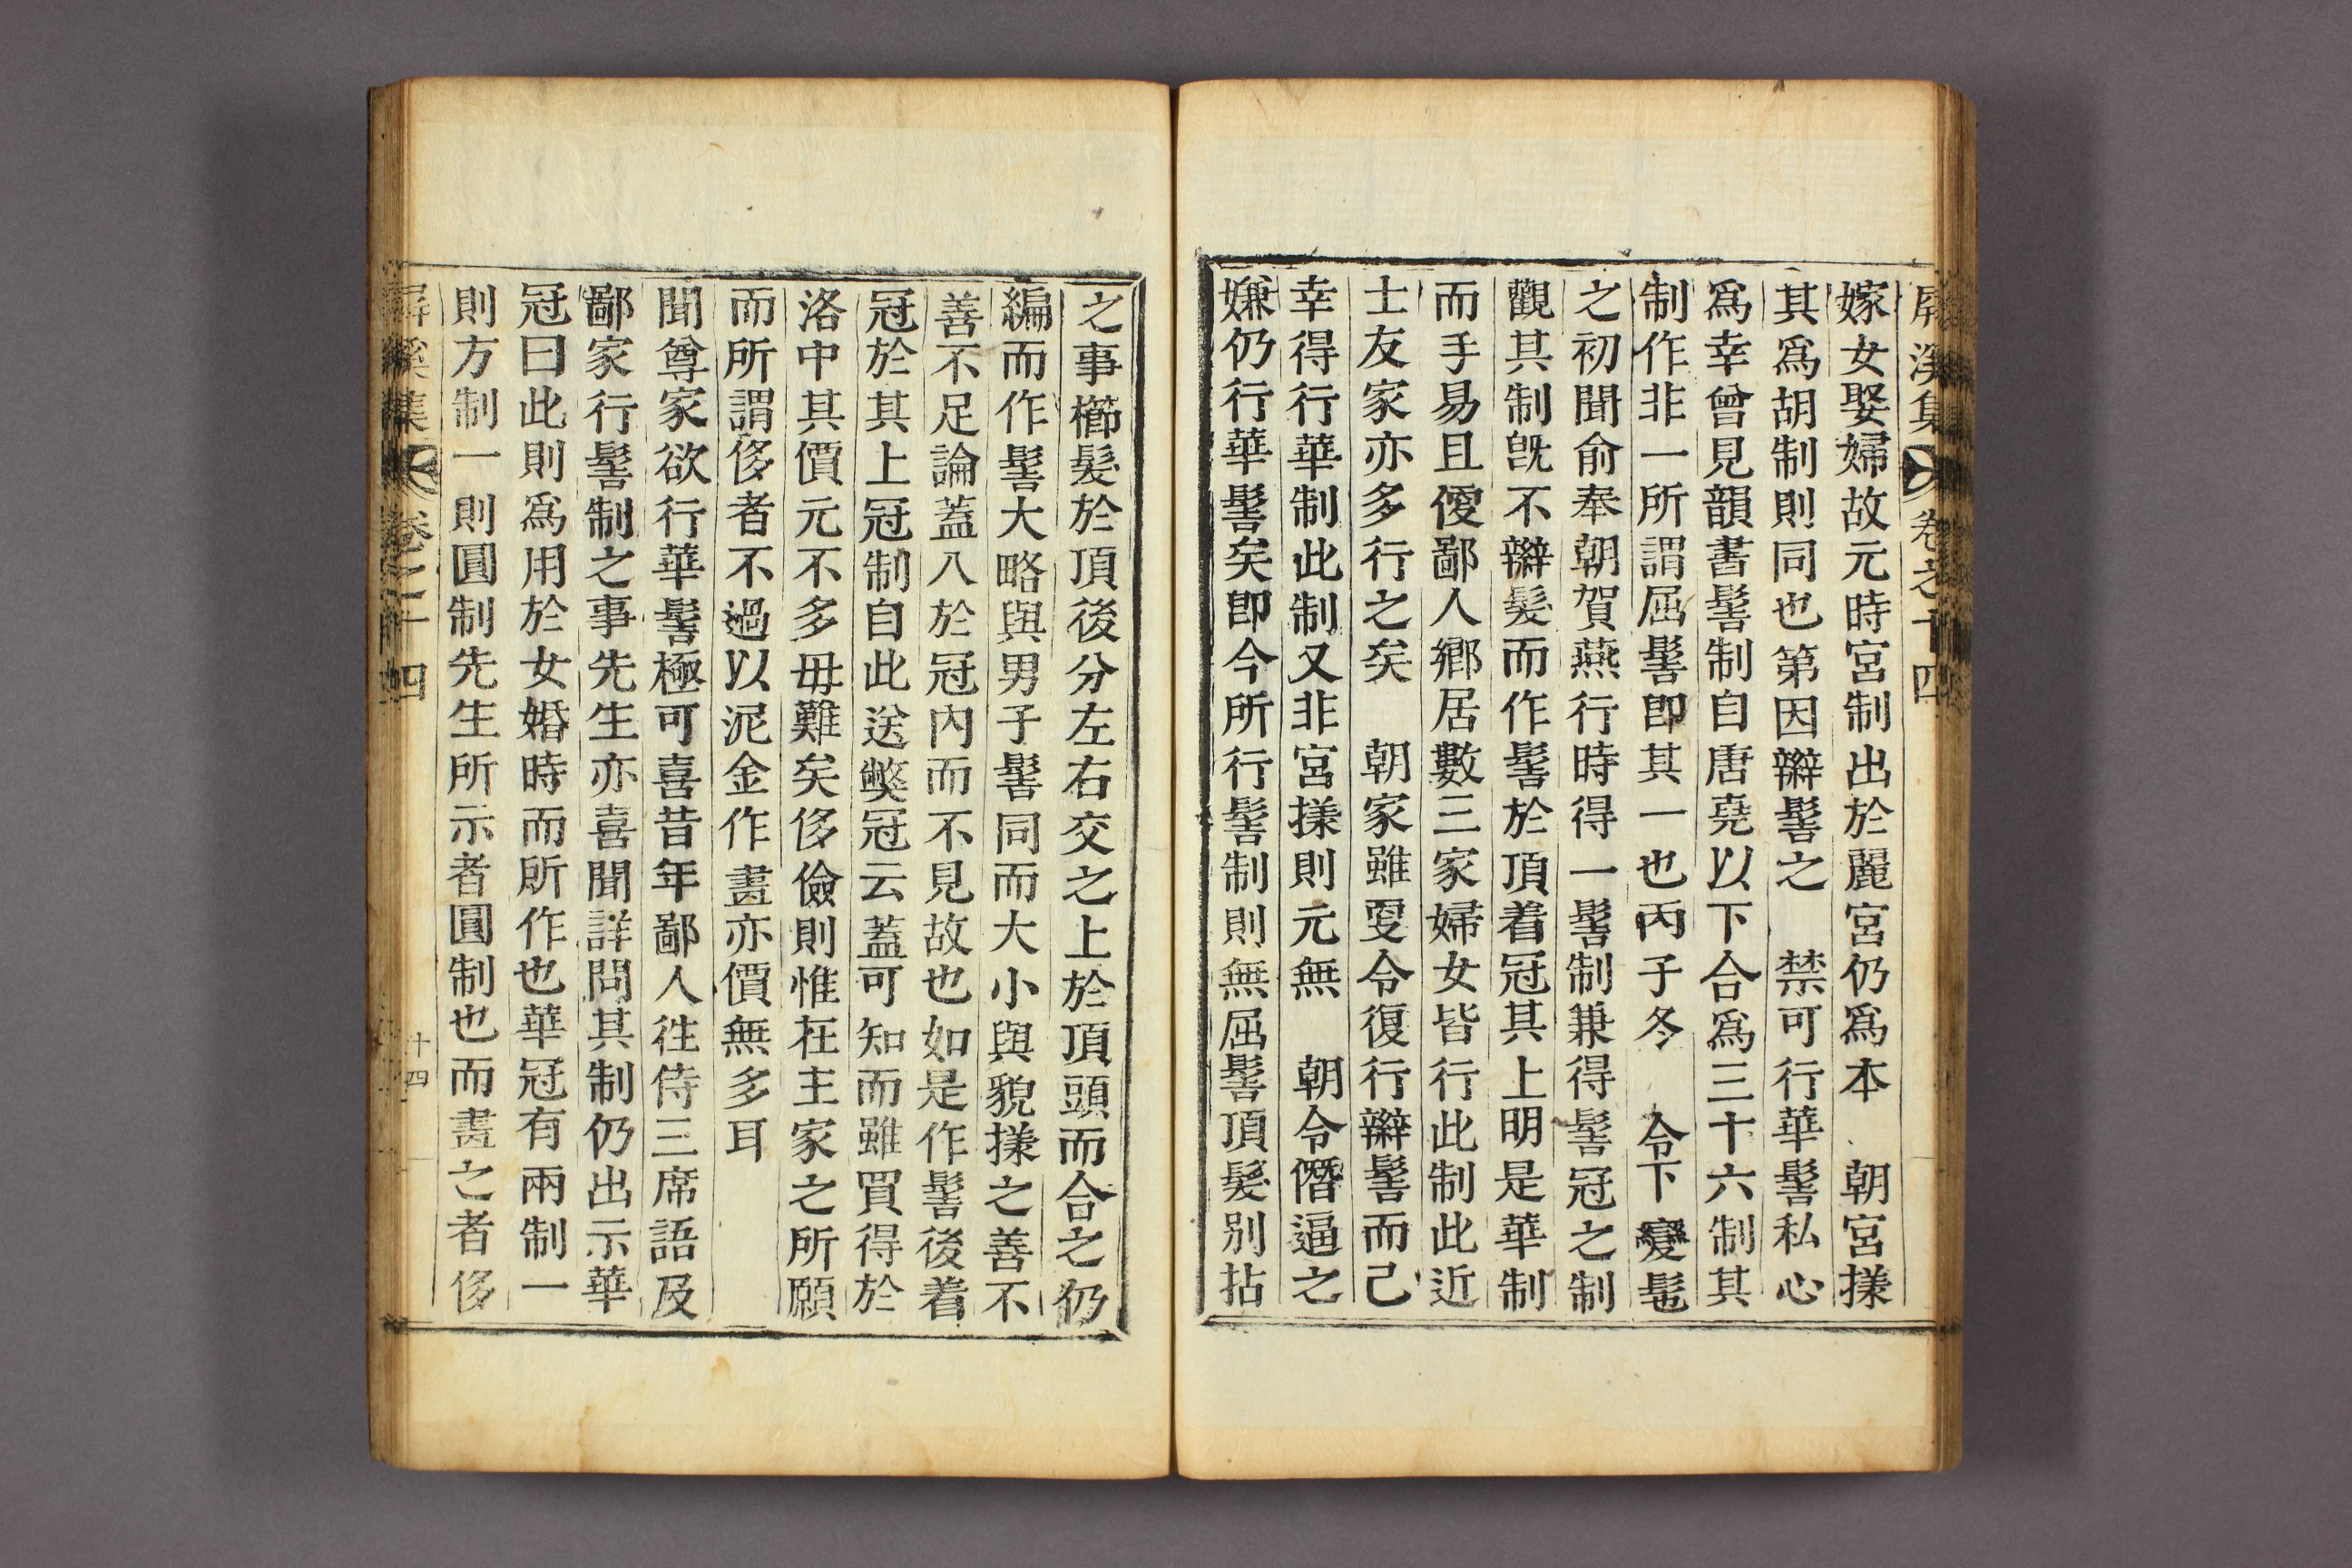 屛溪集 卷之十四
嫁女娶婦故元時宮制出於麗宮仍爲本 朝宮㨾
其爲胡制則同也第因辮髻之 禁可行華髻私心
爲幸曾見韻書髻制自唐堯以下合爲三十六制其
制作非一所謂屈髻卽其一也丙子冬 令下變髢
之初聞俞奉朝賀燕行時得一髻制兼得髻冠之制
觀其制旣不辮髮而作髻於頂着冠其上明是華制
而手易且便鄙人鄕居數三家婦女皆行此制此近
士友家亦多行之矣 朝家雖更令復行辮髻而己
幸得行華制此制又非宮㨾則元無 朝令僭逼之
嫌仍行華髻矣卽今所行髻制則無屈髻頂髮別拈
之事櫛髮於頂後分左右交之上於頂頭而合之仍
編而作髻大略與男子髻同而大小與貌㨾之善不
善不足論蓋入於冠內而不見故也如是作髻後着
冠於其上冠制自此送獘冠云蓋可知而雖買得於
洛中其價元不多毋難矣侈儉則惟在主家之所願
而所謂侈者不過以泥金作畫亦價無多耳
聞尊家欲行華髻極可喜昔年鄙人往侍三席語及
鄙家行髻制之事先生亦喜聞詳問其制仍出示華
冠曰此則爲用於女婚時而所作也華冠有兩制一
則方制一則圓制先生所示者圓制也而畫之者侈
屛溪集 卷之十四 十四